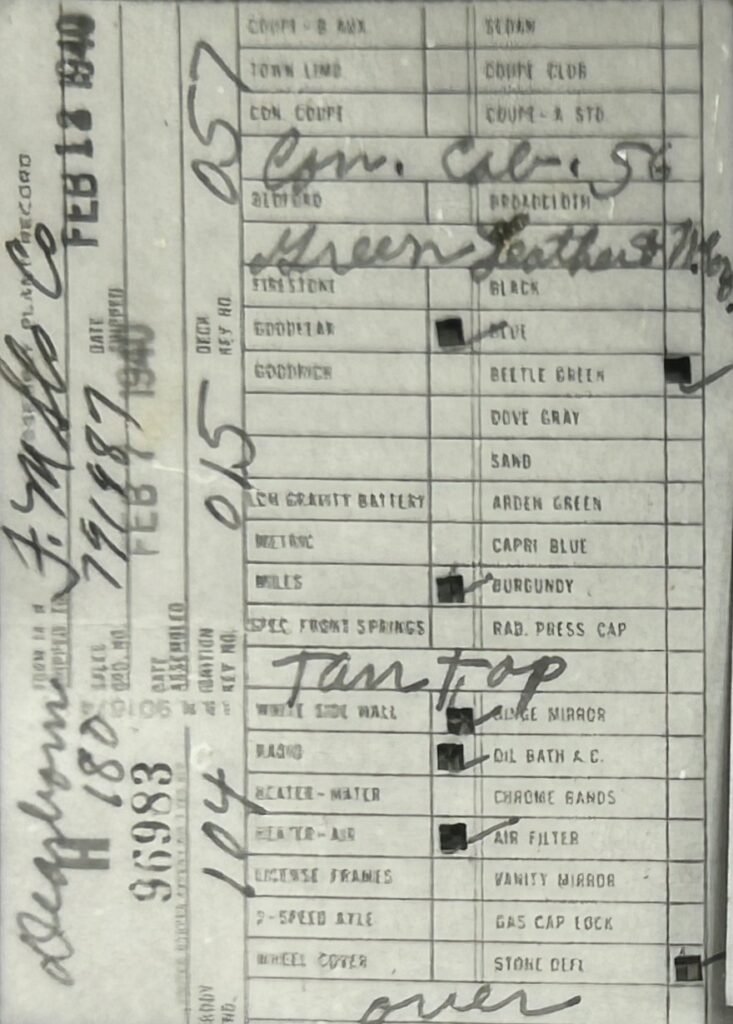 COUPE-B AUX SEDAN
TOWN LIMO COUPE CLUB
CON. COUPE COUPE-A STD
Con. Cab. 56
BEDFORD BROADCLOTH
Green Leather &
FIRESTONE BLACK
GOODYEAR BLUE
GOODRICH BEETLE GREEN
DOVE GRAY
SAND
GRAVITY BATTERY ARDEN GREEN
METRIC CAPRI BLUE
MILES BURGUNDY
SPEC FRONT SPRINGS RAD. PRESS CAP
Tan Top
WHITE SIDE WALL HINGE MIRROR
RADIO OIL BATH A.C.
HEATER-WATER CHROME BANDS
HEATER-AIR AIR FILTER
LICENSE FRAMES VANITY MIRROR
2-SPEED AXLE GAS CAP LOCK
WHEEL COVER STONE DEFL
over
PLANT RECORD
Dearborn F. M Co
FEB 13 1940
H 180 SALES ORD. NO. 791987 DATE SHIPPED
96983 DATE ASSEMBLED FEB 1940
104 IGNITION KEY NO. 015 DECK KEY NO. 057
BODY NO.